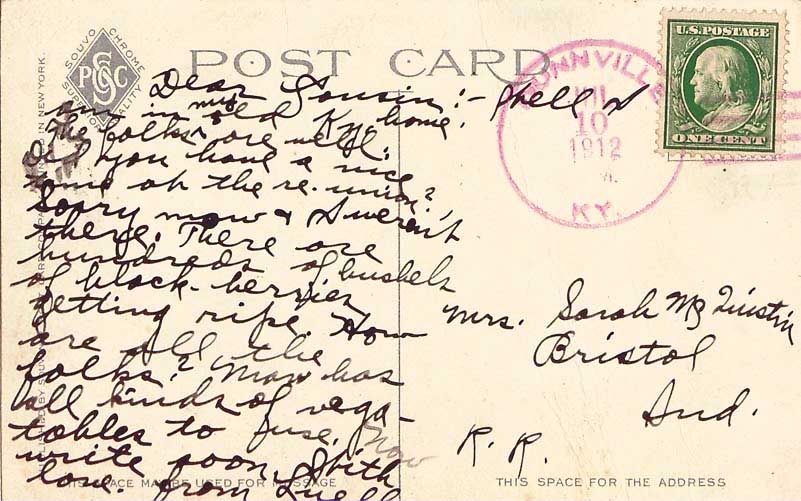 SOUVO CHROME
PCSC
SUPERIOR QUALITY
POST CARD
Dear Cousin:- Well I
am in my old Ky. home.
The folks are well.
Did you have a nice
time at the re-union?
Sorry maw & I weren't
there. There are
hundreds of bushels
of black-berries
getting ripe. How
are all the
folks? Maw has
all kinds of vega-
tables to use. Now
write soon, With
love. From
THIS SPACE MAY BE USED FOR MESSAGE
IN NEW YORK.
DUNNVILLE
JUL
10
1912
KY.
U.S. POSTAGE
ONE CENT
Mrs. Sarah
Bristol
Ind.
R. R.
THIS SPACE FOR THE ADDRESS